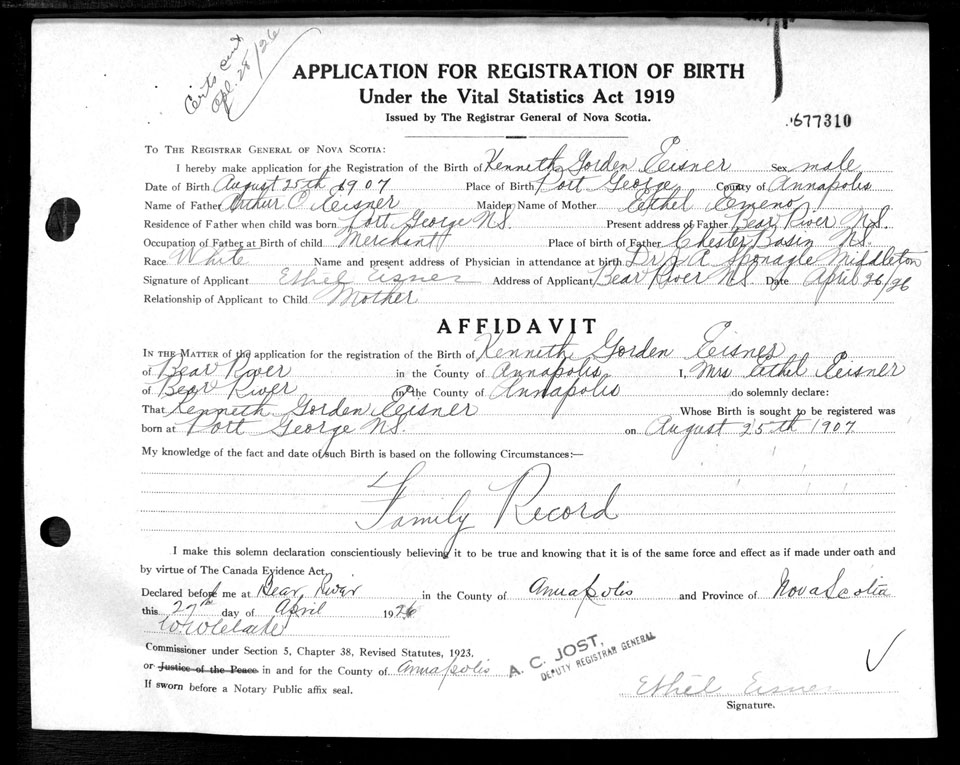 Certs sent
Apl. 28/26
APPLICATION FOR REGISTRATION OF BIRTH
Under the Vital Statistics Act 1919
Issued by The Registrar General of Nova Scotia.
677310
To The Registrar General of Nova Scotia:
I hereby make application for the Registration of the Birth of Kenneth Gorden Eisner Sex male
Date of Birth August 25th 1907 Place of Birth Port George County of Annapolis
Name of Father Arthur C Eisner Maiden Name of Mother Ethel Emeno
Residence of Father when child was born Port George N.S. Present address of Father Bear River N.S.
Occupation of Father at Birth of child Merchant Place of birth of Father Chester Basin N.S.
Race White Name and present address of Physician in attendance at birth Dr. J A Sponagle Middleton
Signature of Applicant Ethel Eisner Address of Applicant Bear River N.S. Date April 26/26
Relationship of Applicant to Child Mother
AFFIDAVIT
In the Matter of the application for the registration of the Birth of Kenneth Gorden Eisner
of Bear River in the County of Annapolis I, Mrs Ethel Eisner
of Bear River in the County of Annapolis do solemnly declare:
That Kenneth Gorden Eisner Whose Birth is sought to be registered was
born at Port George N.S. on August 25th 1907
My knowledge of the fact and date of such Birth is based on the following Circumstances:—
Family Record
I make this solemn declaration conscientiously believing it to be true and knowing that it is of the same force and effect as if made under oath and
by virtue of The Canada Evidence Act.
Declared before me at Bear River in the County of Annapolis and Province of Nova Scotia
this 27th day of April 1926
Commissioner under Section 5, Chapter 38, Revised Statutes, 1923.
or Justice of the Peace in and for the County of Annapolis
A. C. JOST,
DEPUTY REGISTRAR GENERAL
If sworn before a Notary Public affix seal.
Ethel Eisner
Signature.